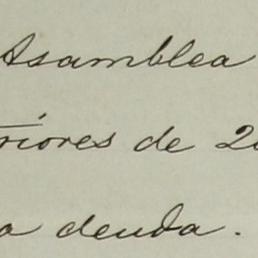 Asamblea
riores de 2
a deuda.